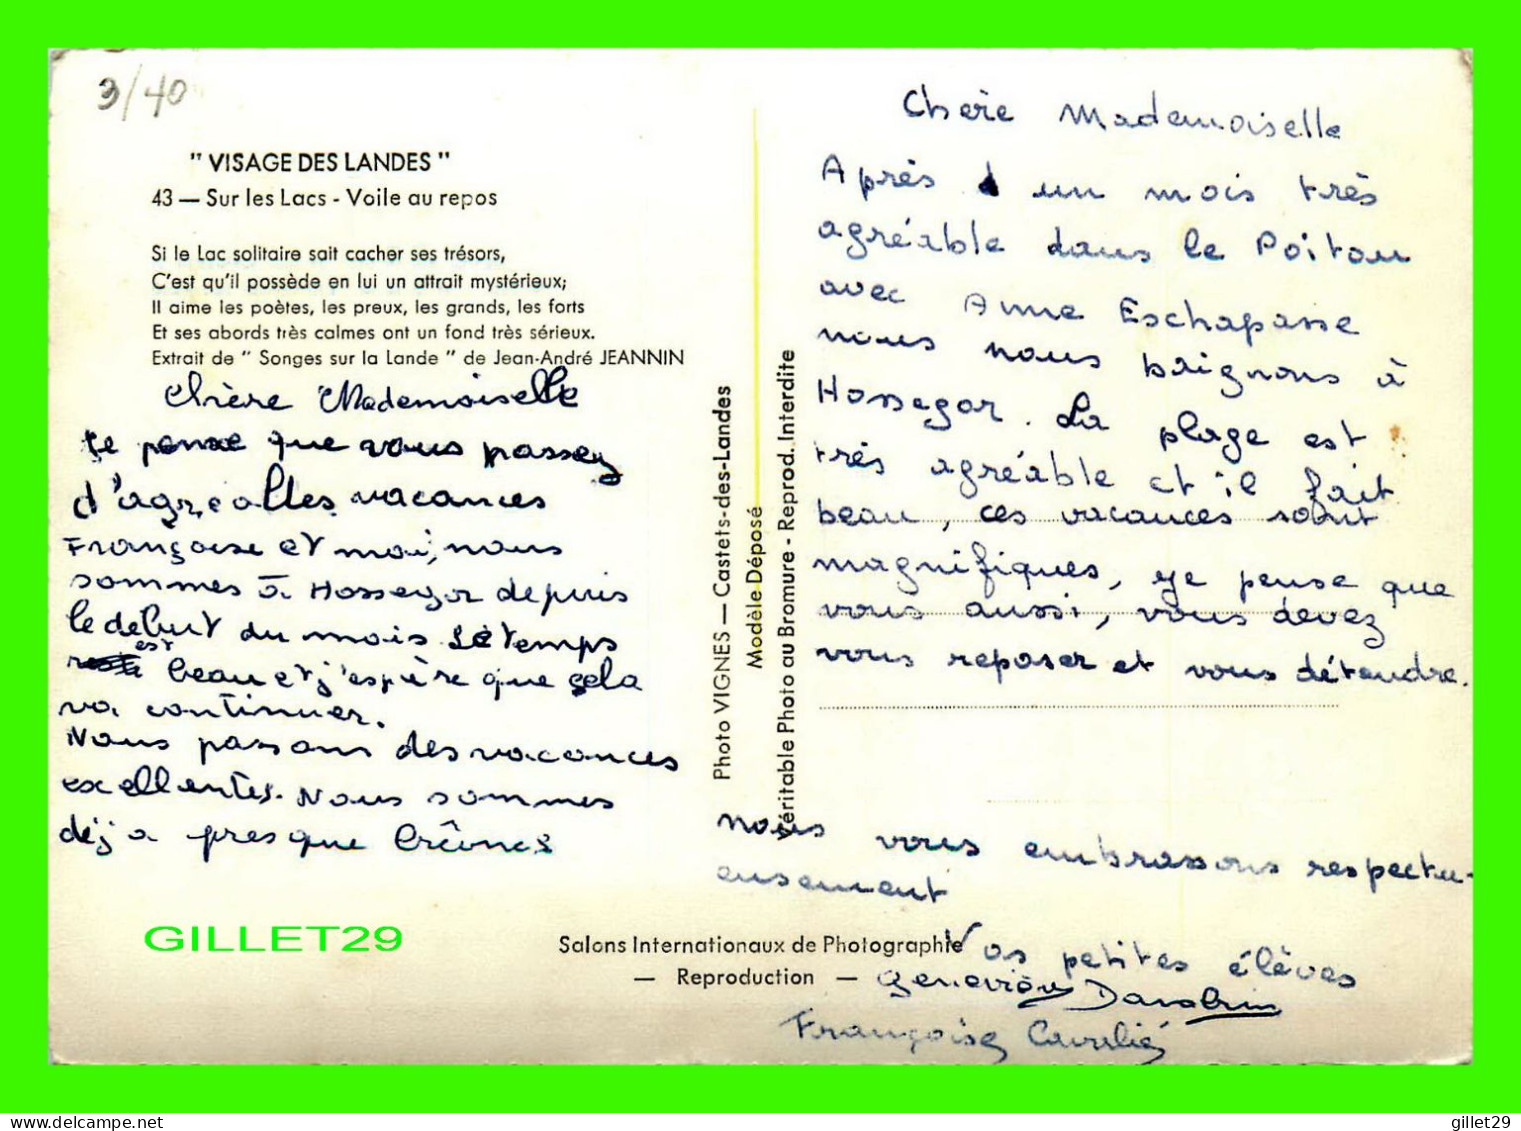 3/40
" VISAGE DES LANDES "
43 — Sur les Lacs - Voile au repos
Si le Lac solitaire sait cacher ses trésors,
C'est qu'il possède en lui un attrait mystérieux;
Il aime les poètes, les preux, les grands, les forts
Et ses abords très calmes ont un fond très sérieux.
Extrait de " Songes sur la Lande " de Jean-André JEANNIN
Chère Mademoiselle
Je pense que vous passez
d'agréalles vacances
Françoise et moi, nous
sommes à Hossegor depuis
le debut du mois Le temps
est beau et j'espère que cela
va continuer.
Nous passons des vacances
excellentes. Nous sommes
déja presque
Photo VIGNES — Castets-des-Landes
Modèle Déposé
Véritable Photo au Bromure - Reprod. Interdite
Chère Mademoiselle
Après un mois très
agréable dans le Poitou
avec Anne Eschapasse
nous nous baignons à
Hossegor. La plage est
très agréable et il fait
beau, ces vacances sont
magnifiques, je pense que
vous aussi, vous devez
vous reposer et vous détendre.
nous vous embrassons respectu-
eusement
Vos petites élèves
Geneviève
Françoise
Salons Internationaux de Photographie
— Reproduction —
GILLET29
gillet29